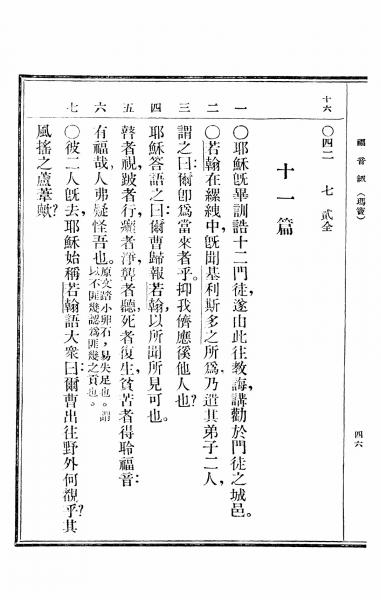 福音經(瑪竇)
四六
十六 〇四二 七 貳全
十一篇
一 〇耶穌旣畢訓誥十二門徒,遂由此往教誨講勸於門徒之城邑。
二 〇若翰在縲絏中,旣聞基利斯多之所爲,乃遣其弟子二人,
三 謂之曰:爾卽爲當來者乎。抑我儕應徯他人也?
四 耶穌答語之曰:爾曹歸報若翰,以所聞所見可也。
五 瞽者視,跛者行,癩者淨,聾者聽,死者復生,貧苦者得聆福音:
六 有福哉,人弗疑怪吾也。原文踏小卵石,易失足也。謂
以不匪幾認爲匪幾之貢也。
七 〇彼二人旣去,耶穌始稱若翰語大衆曰:爾曹出往野外何覩乎?其
風搖之蘆葦歟?